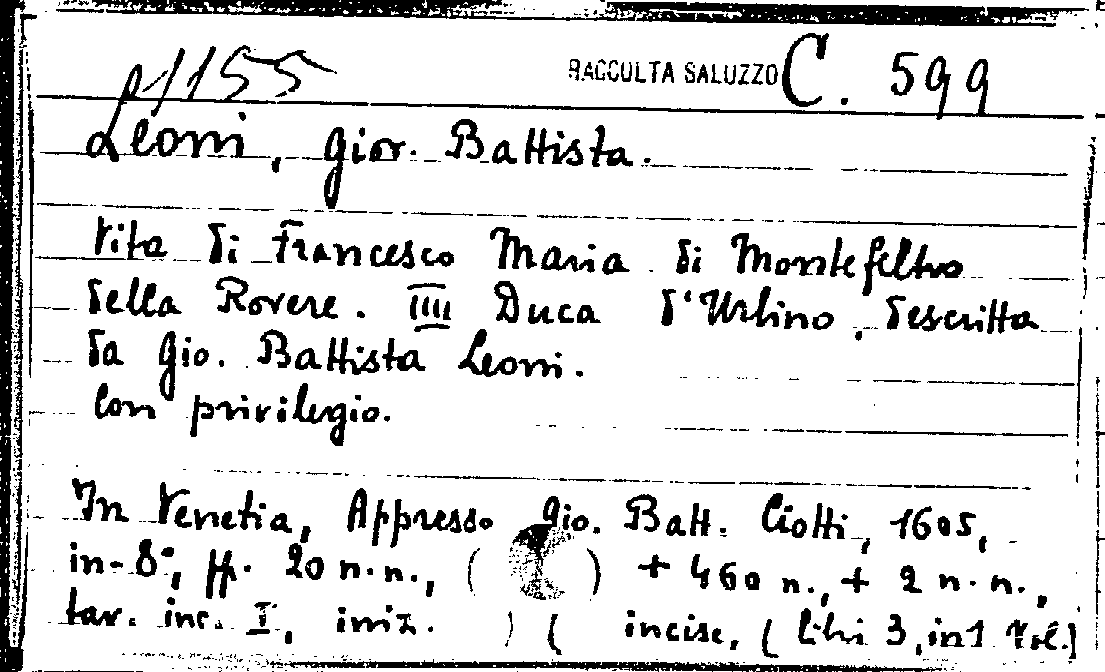 p1155 RACCOLTA SALUZZO C. 599
Leoni, Giov. Battista.
Vita di Francesco Maria di Montefeltro
della Rovere. IIII Duca d'Urbino, descritta
da Gio. Battista Leoni.
Con privilegio.
In Venetia, Appresso Gio. Batt. Ciotti, 1605,
in-8°, pp. 20 n.n., ( ) + 460 n., + 2 n.n.,
tav. inc. I, iniz. ) ( incise, (libri 3, in 1 Vol.)